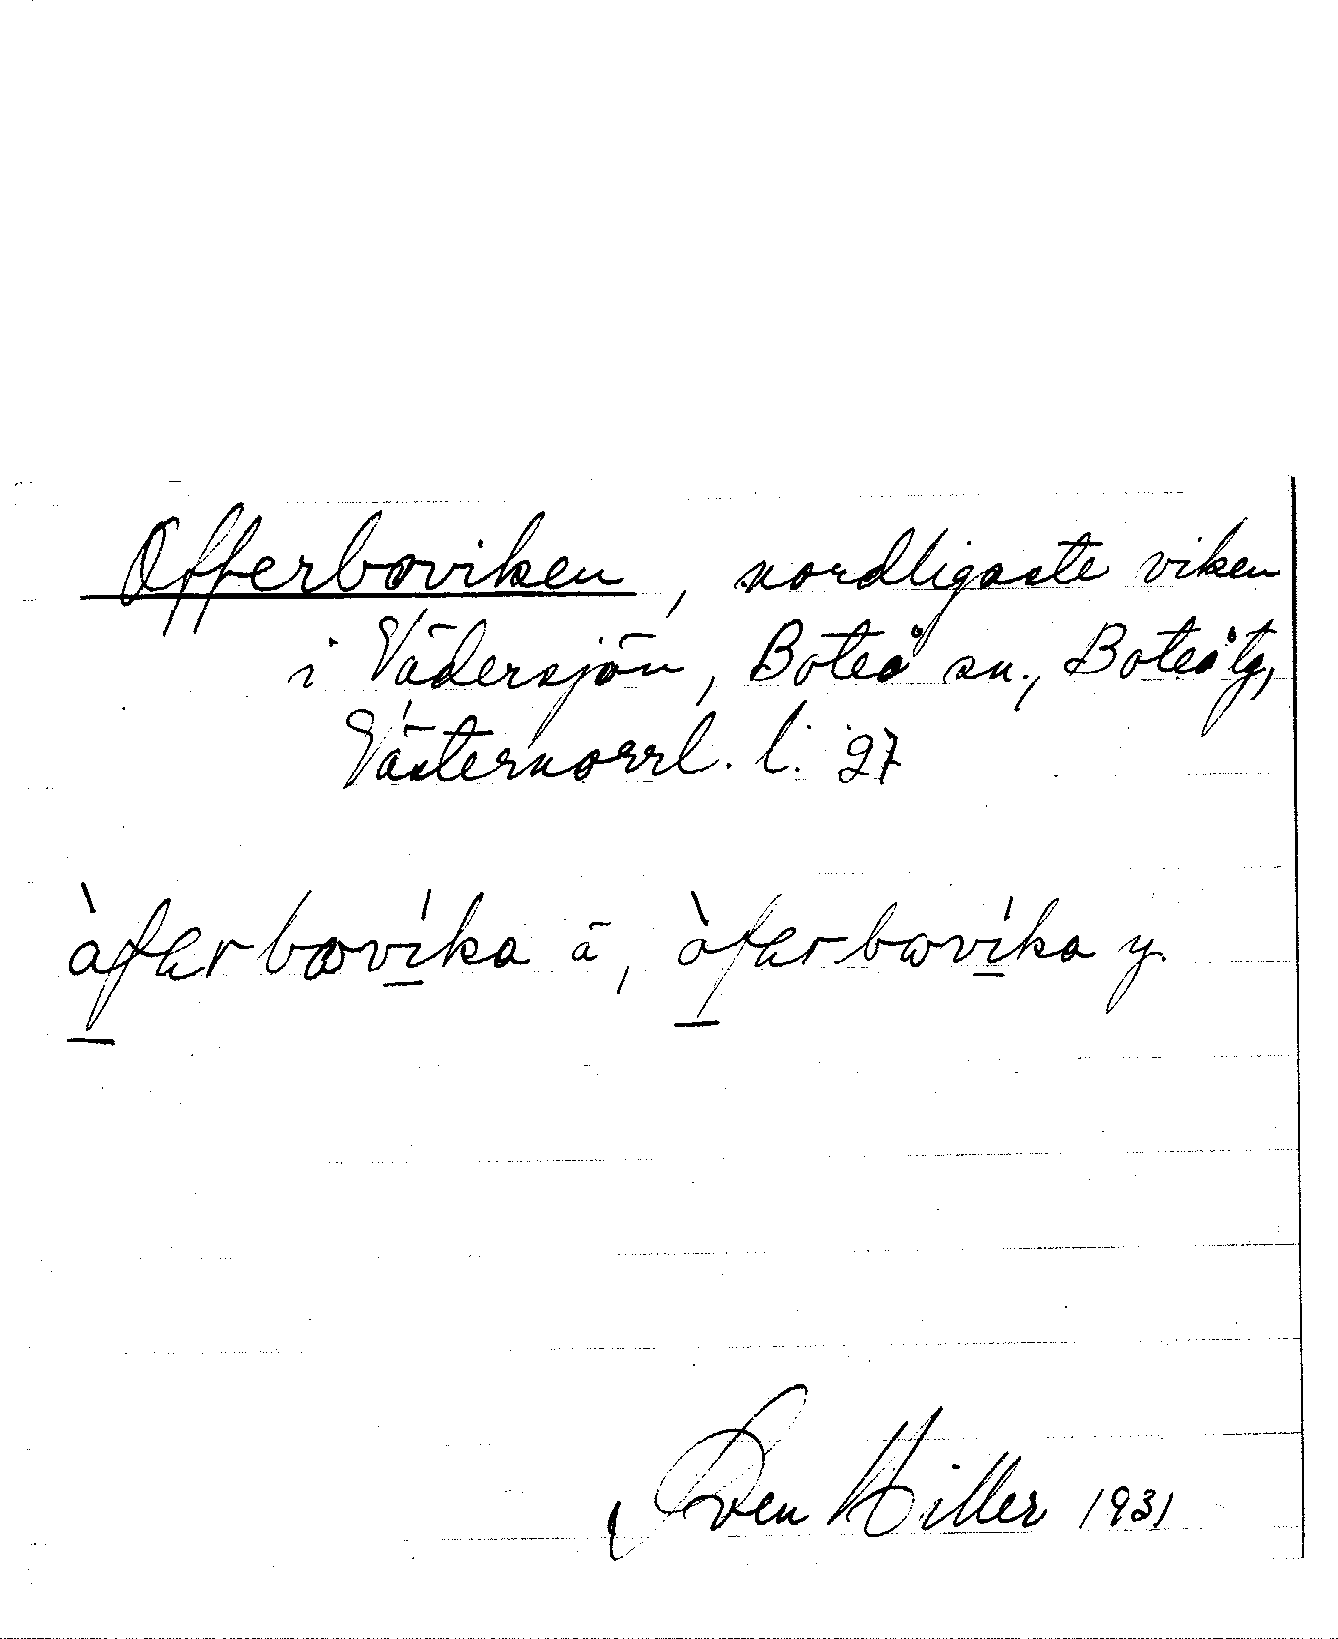 Offerboviken, nordligaste viken
i Vädersjön, Boteå sn., Boteå tg,
Västernorrl. l. 27
àferbovíka ä, àferbovíka y.
Sven Hiller 1931